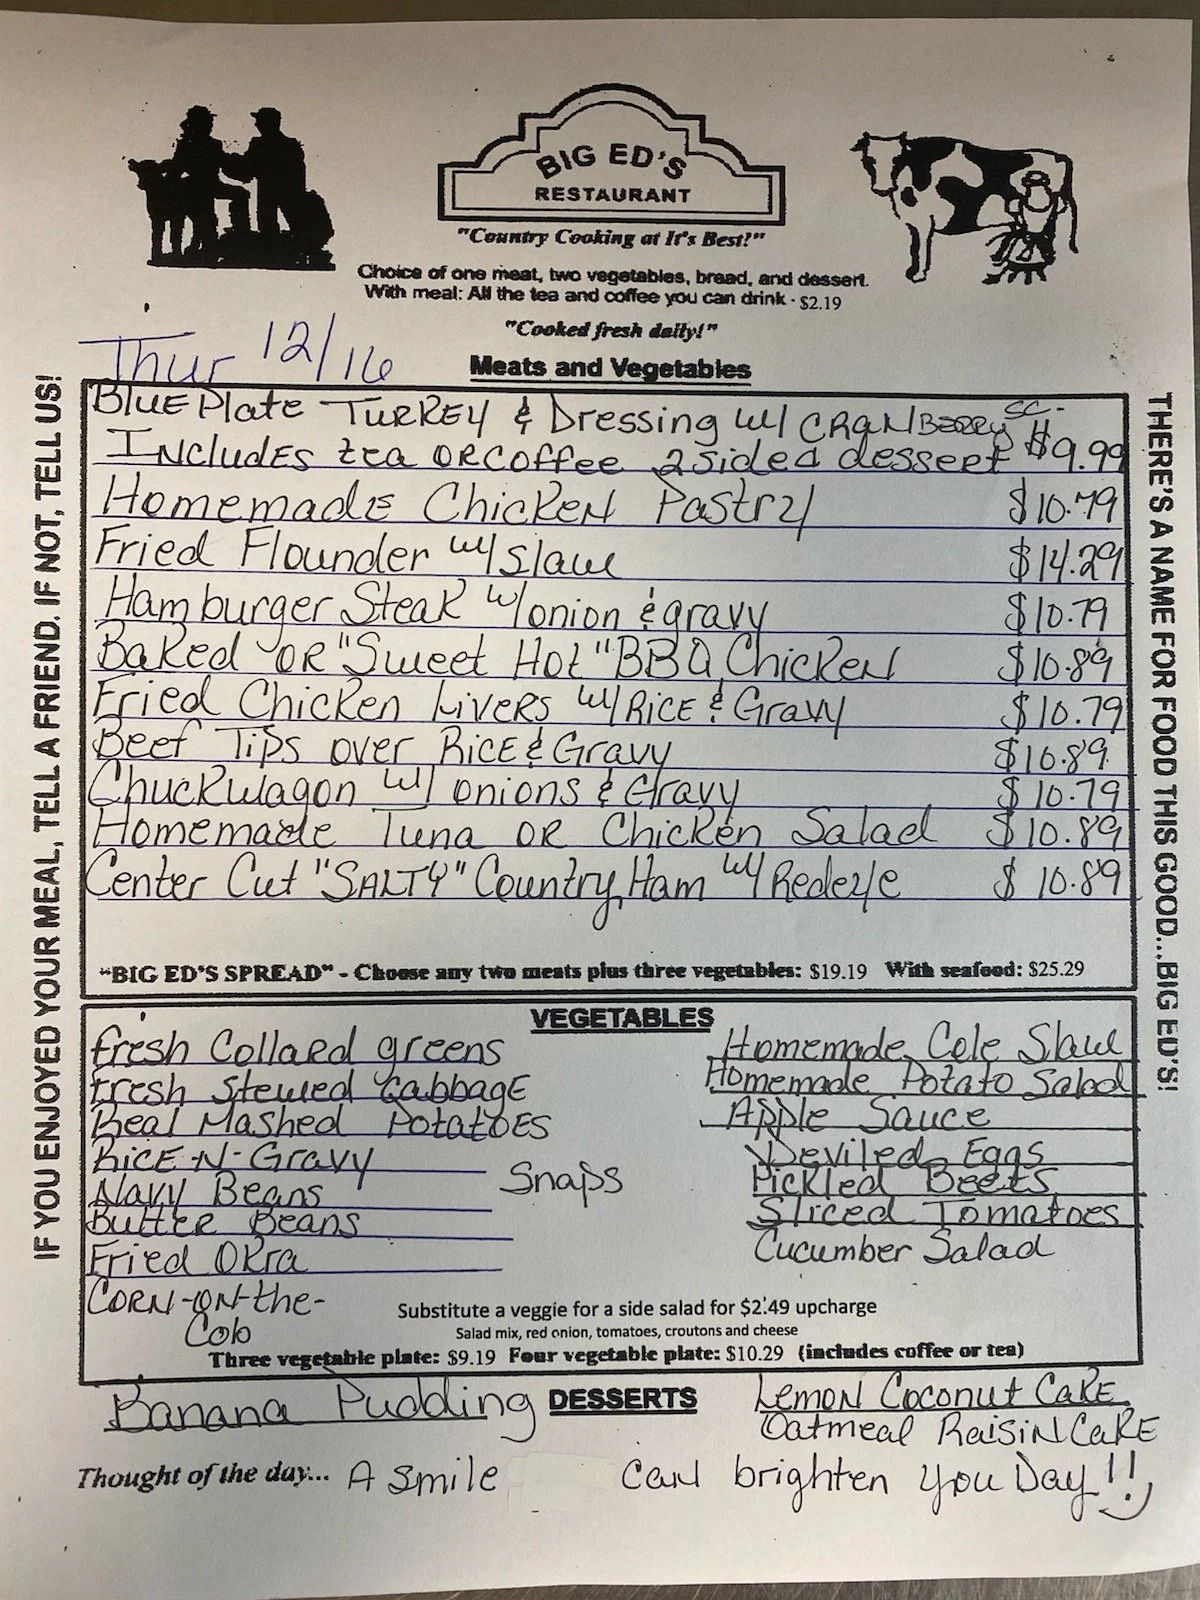 BIG ED'S
RESTAURANT
"Country Cooking at It's Best!"
Choice of one meat, two vegetables, bread, and dessert.
With meal: All the tea and coffee you can drink - $2.19
"Cooked fresh daily!"
Thur 12/16
Meats and Vegetables
Blue Plate Turkey & Dressing w/ Cranberry sc.
Includes tea or coffee 2 sides dessert $9.99
Homemade Chicken Pastry $10.79
Fried Flounder w/ Slaw $14.29
Hamburger Steak w/ onion & gravy $10.79
Baked or "Sweet Hot" BBQ Chicken $10.89
Fried Chicken Livers w/ Rice & Gravy $10.79
Beef Tips over Rice & Gravy $10.89
Chuckwagon w/ onions & Gravy $10.79
Homemade Tuna or Chicken Salad $10.89
Center Cut "SALTY" Country Ham w/ Redeye $10.89
"BIG ED'S SPREAD" - Choose any two meats plus three vegetables: $19.19 With seafood: $25.29
IF YOU ENJOYED YOUR MEAL, TELL A FRIEND. IF NOT, TELL US!
THERE'S A NAME FOR FOOD THIS GOOD...BIG ED'S!
VEGETABLES
Fresh Collard greens
Fresh Stewed Cabbage
Real Mashed Potatoes
Rice-N-Gravy
Navy Beans
Butter Beans
Fried Okra
Corn-on-the-
Cob
Snaps
Homemade Cole Slaw
Homemade Potato Salad
Apple Sauce
Deviled Eggs
Pickled Beets
Sliced Tomatoes
Cucumber Salad
Substitute a veggie for a side salad for $2.49 upcharge
Salad mix, red onion, tomatoes, croutons and cheese
Three vegetable plate: $9.19 Four vegetable plate: $10.29 (includes coffee or tea)
DESSERTS
Banana Pudding
Lemon Coconut Cake
Oatmeal Raisin Cake
Thought of the day... A smile can brighten you Day!!